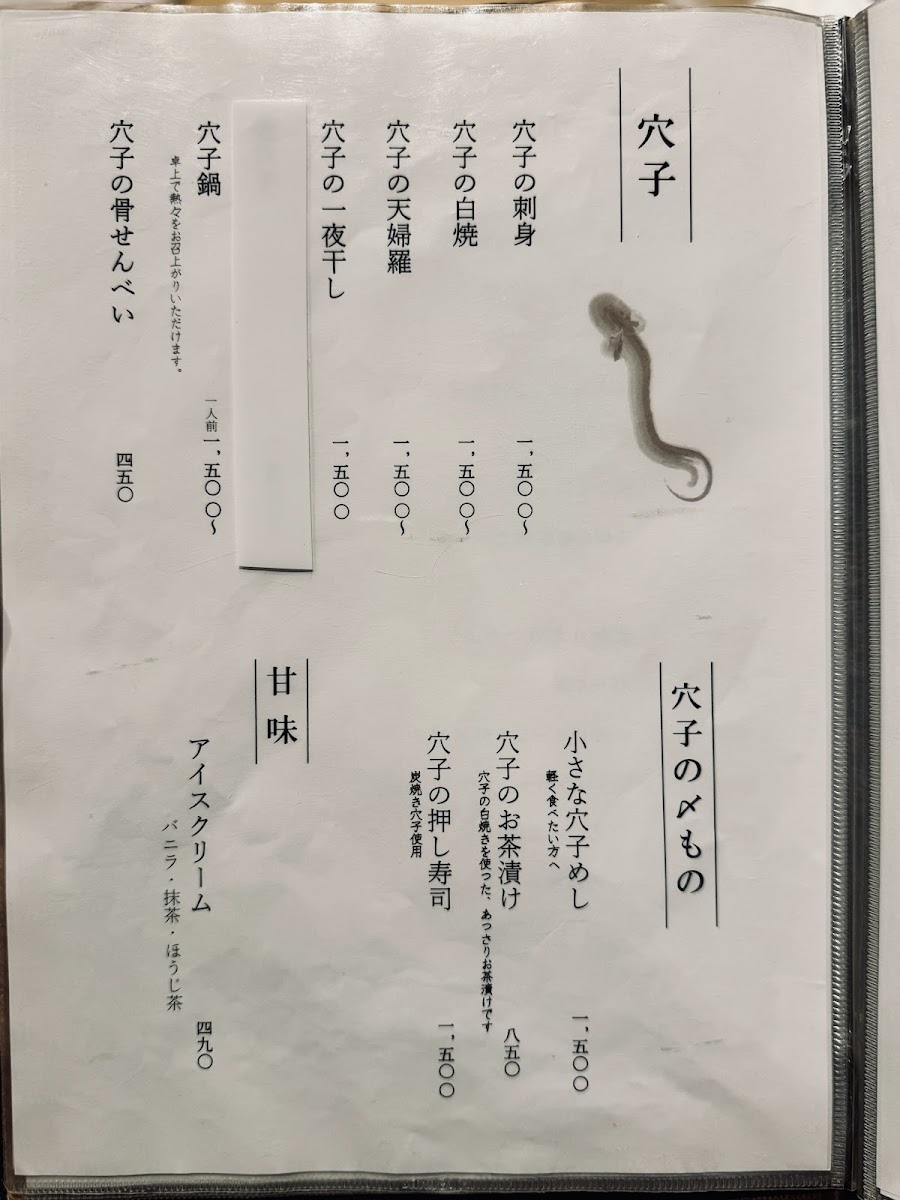 穴子
穴子の刺身 一、五〇〇〜
穴子の白焼 一、五〇〇〜
穴子の天婦羅 一、五〇〇〜
穴子の一夜干し 一、五〇〇
穴子鍋 一人前一、五〇〇〜
卓上で熱々をお召上がりいただけます。
穴子の骨せんべい 四五〇
穴子の〆もの
小さな穴子めし 一、五〇〇
軽く食べたい方へ
穴子のお茶漬け 八五〇
穴子の白焼きを使った、あっさりお茶漬けです
穴子の押し寿司 一、五〇〇
炭焼き穴子使用
甘味
アイスクリーム 四九〇
バニラ・抹茶・ほうじ茶